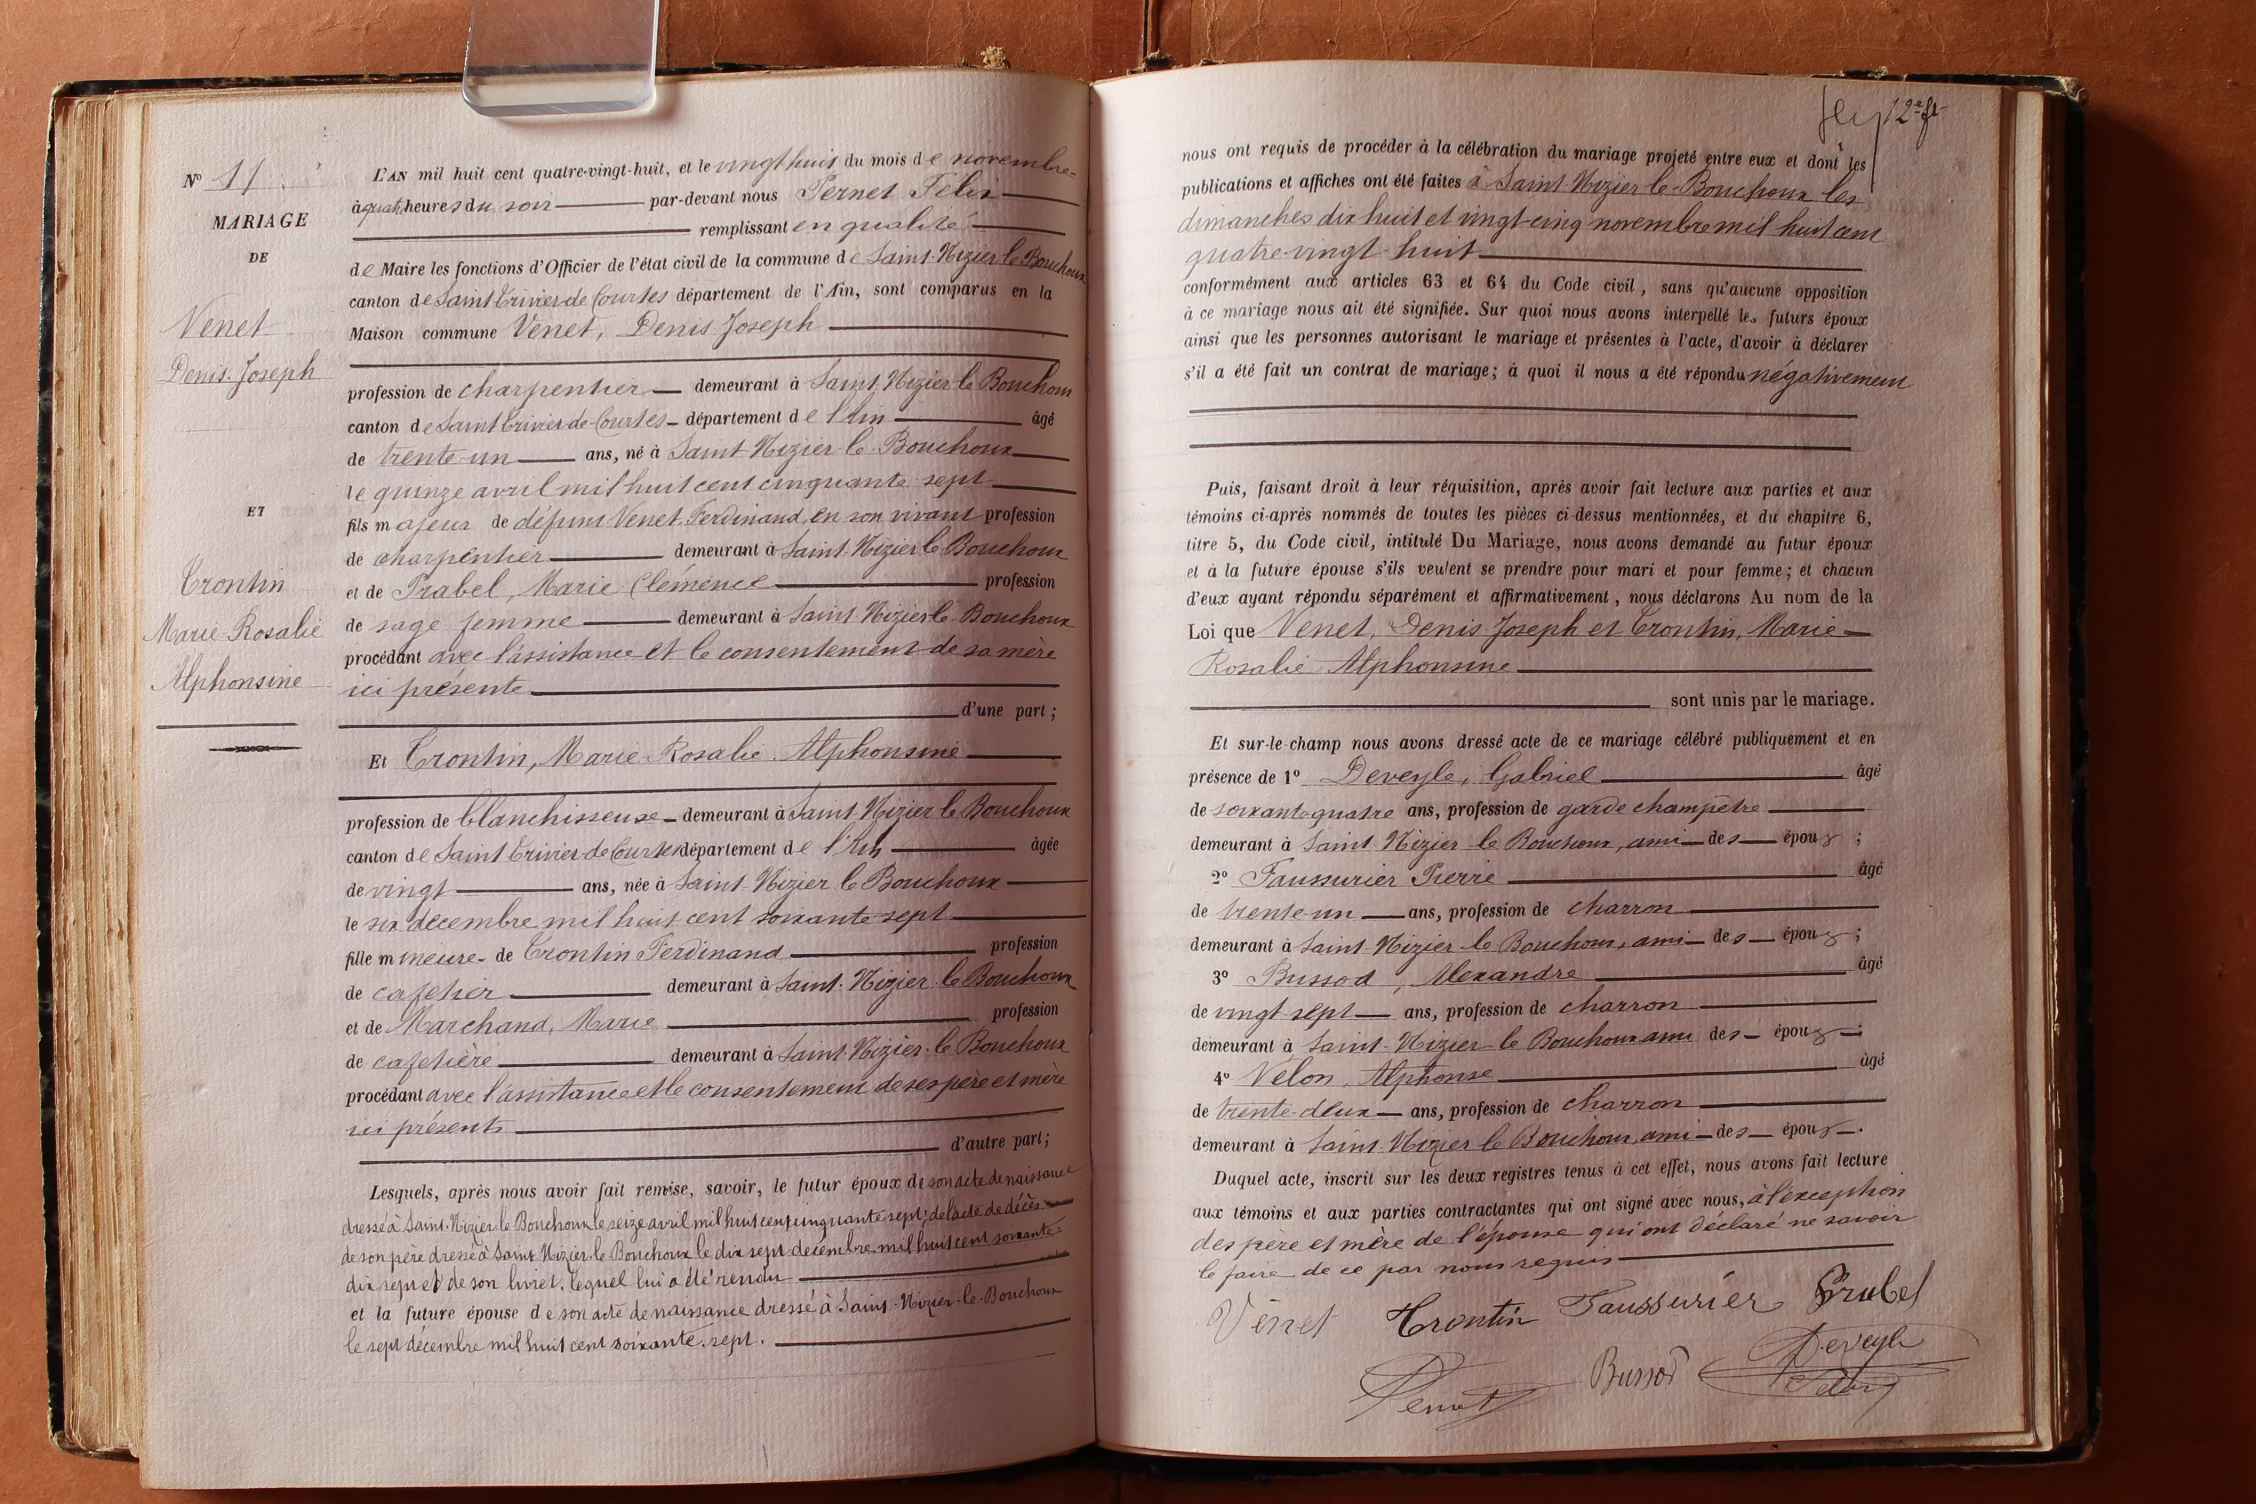 N° 11
MARIAGE
DE
Venet
Denis Joseph
ET
Trontin
Marie Rosalie
Alphonsine
L'AN mil huit cent quatre-vingt-huit, et le vingt huit du mois de novembre
à quatre heures du soir par-devant nous Pernet Félix
remplissant en qualité
de Maire les fonctions d'Officier de l'état civil de la commune de Saint-Nizier-le-Bouchoux
canton de Saint Trivier-de-Courtes département de l'Ain, sont comparus en la
Maison commune Venet, Denis Joseph
profession de charpentier demeurant à Saint-Nizier-le-Bouchoux
canton de Saint Trivier-de-Courtes département de l'Ain âgé
de trente-un ans, né à Saint-Nizier-le-Bouchoux
le quinze avril mil huit cent cinquante sept
fils majeur de défunt Venet Ferdinand, en son vivant profession
de charpentier demeurant à Saint-Nizier-le-Bouchoux
et de Prabel, Marie Clémence profession
de sage femme demeurant à Saint-Nizier-le-Bouchoux
procédant avec l'assistance et le consentement de sa mère
ici présente
d'une part ;
Et Trontin, Marie Rosalie Alphonsine
profession de blanchisseuse demeurant à Saint-Nizier-le-Bouchoux
canton de Saint Trivier-de-Courtes département de l'Ain âgée
de vingt ans, née à Saint-Nizier-le-Bouchoux
le six décembre mil huit cent soixante-sept
fille mineure de Trontin Ferdinand profession
de cafetier demeurant à Saint-Nizier-le-Bouchoux
et de Marchand, Marie profession
de cafetière demeurant à Saint-Nizier-le-Bouchoux
procédant avec l'assistance et le consentement de ses père et mère
ici présents
d'autre part ;
Lesquels, après nous avoir fait remise, savoir, le futur époux de son acte de naissance
dressé à Saint-Nizier-le-Bouchoux le seize avril mil huit cent cinquante sept, de l'acte de décès
de son père dressé à Saint-Nizier-le-Bouchoux le dix sept décembre mil huit cent soixante-
dix sept et de son livret, lequel lui a été rendu
et la future épouse de son acte de naissance dressé à Saint-Nizier-le-Bouchoux
le sept décembre mil huit cent soixante-sept.
12e ft
nous ont requis de procéder à la célébration du mariage projeté entre eux et dont les
publications et affiches ont été faites à Saint-Nizier-le-Bouchoux les
dimanches dix huit et vingt-cinq novembre mil huit cent
quatre-vingt-huit
conformément aux articles 63 et 64 du Code civil, sans qu'aucune opposition
à ce mariage nous ait été signifiée. Sur quoi nous avons interpellé les futurs époux
ainsi que les personnes autorisant le mariage et présentes à l'acte, d'avoir à déclarer
s'il a été fait un contrat de mariage ; à quoi il nous a été répondu négativement
Puis, faisant droit à leur réquisition, après avoir fait lecture aux parties et aux
témoins ci-après nommés de toutes les pièces ci-dessus mentionnées, et du chapitre 6,
titre 5, du Code civil, intitulé Du Mariage, nous avons demandé au futur époux
et à la future épouse s'ils veulent se prendre pour mari et pour femme ; et chacun
d'eux ayant répondu séparément et affirmativement, nous déclarons Au nom de la
Loi que Venet, Denis Joseph et Trontin, Marie
Rosalie Alphonsine
sont unis par le mariage.
Et sur-le-champ nous avons dressé acte de ce mariage célébré publiquement et en
présence de 1° Deveyle, Gabriel âgé
de soixante quatre ans, profession de garde champêtre
demeurant à Saint-Nizier-le-Bouchoux, ami des époux ;
2° Faussurier Pierre âgé
de trente-un ans, profession de charron
demeurant à Saint-Nizier-le-Bouchoux, ami des époux ;
3° Bussod, Alexandre âgé
de vingt-sept ans, profession de charron
demeurant à Saint-Nizier-le-Bouchoux ami des époux ;
4° Velon, Alphonse âgé
de trente-deux ans, profession de charron
demeurant à Saint-Nizier-le-Bouchoux, ami des époux.
Duquel acte, inscrit sur les deux registres tenus à cet effet, nous avons fait lecture
aux témoins et aux parties contractantes qui ont signé avec nous, à l'exception
des père et mère de l'épouse qui ont déclaré ne savoir
le faire de ce par nous requis
Venet Trontin Faussurier Prabel
Pernet Bussod Deveyle
Velon